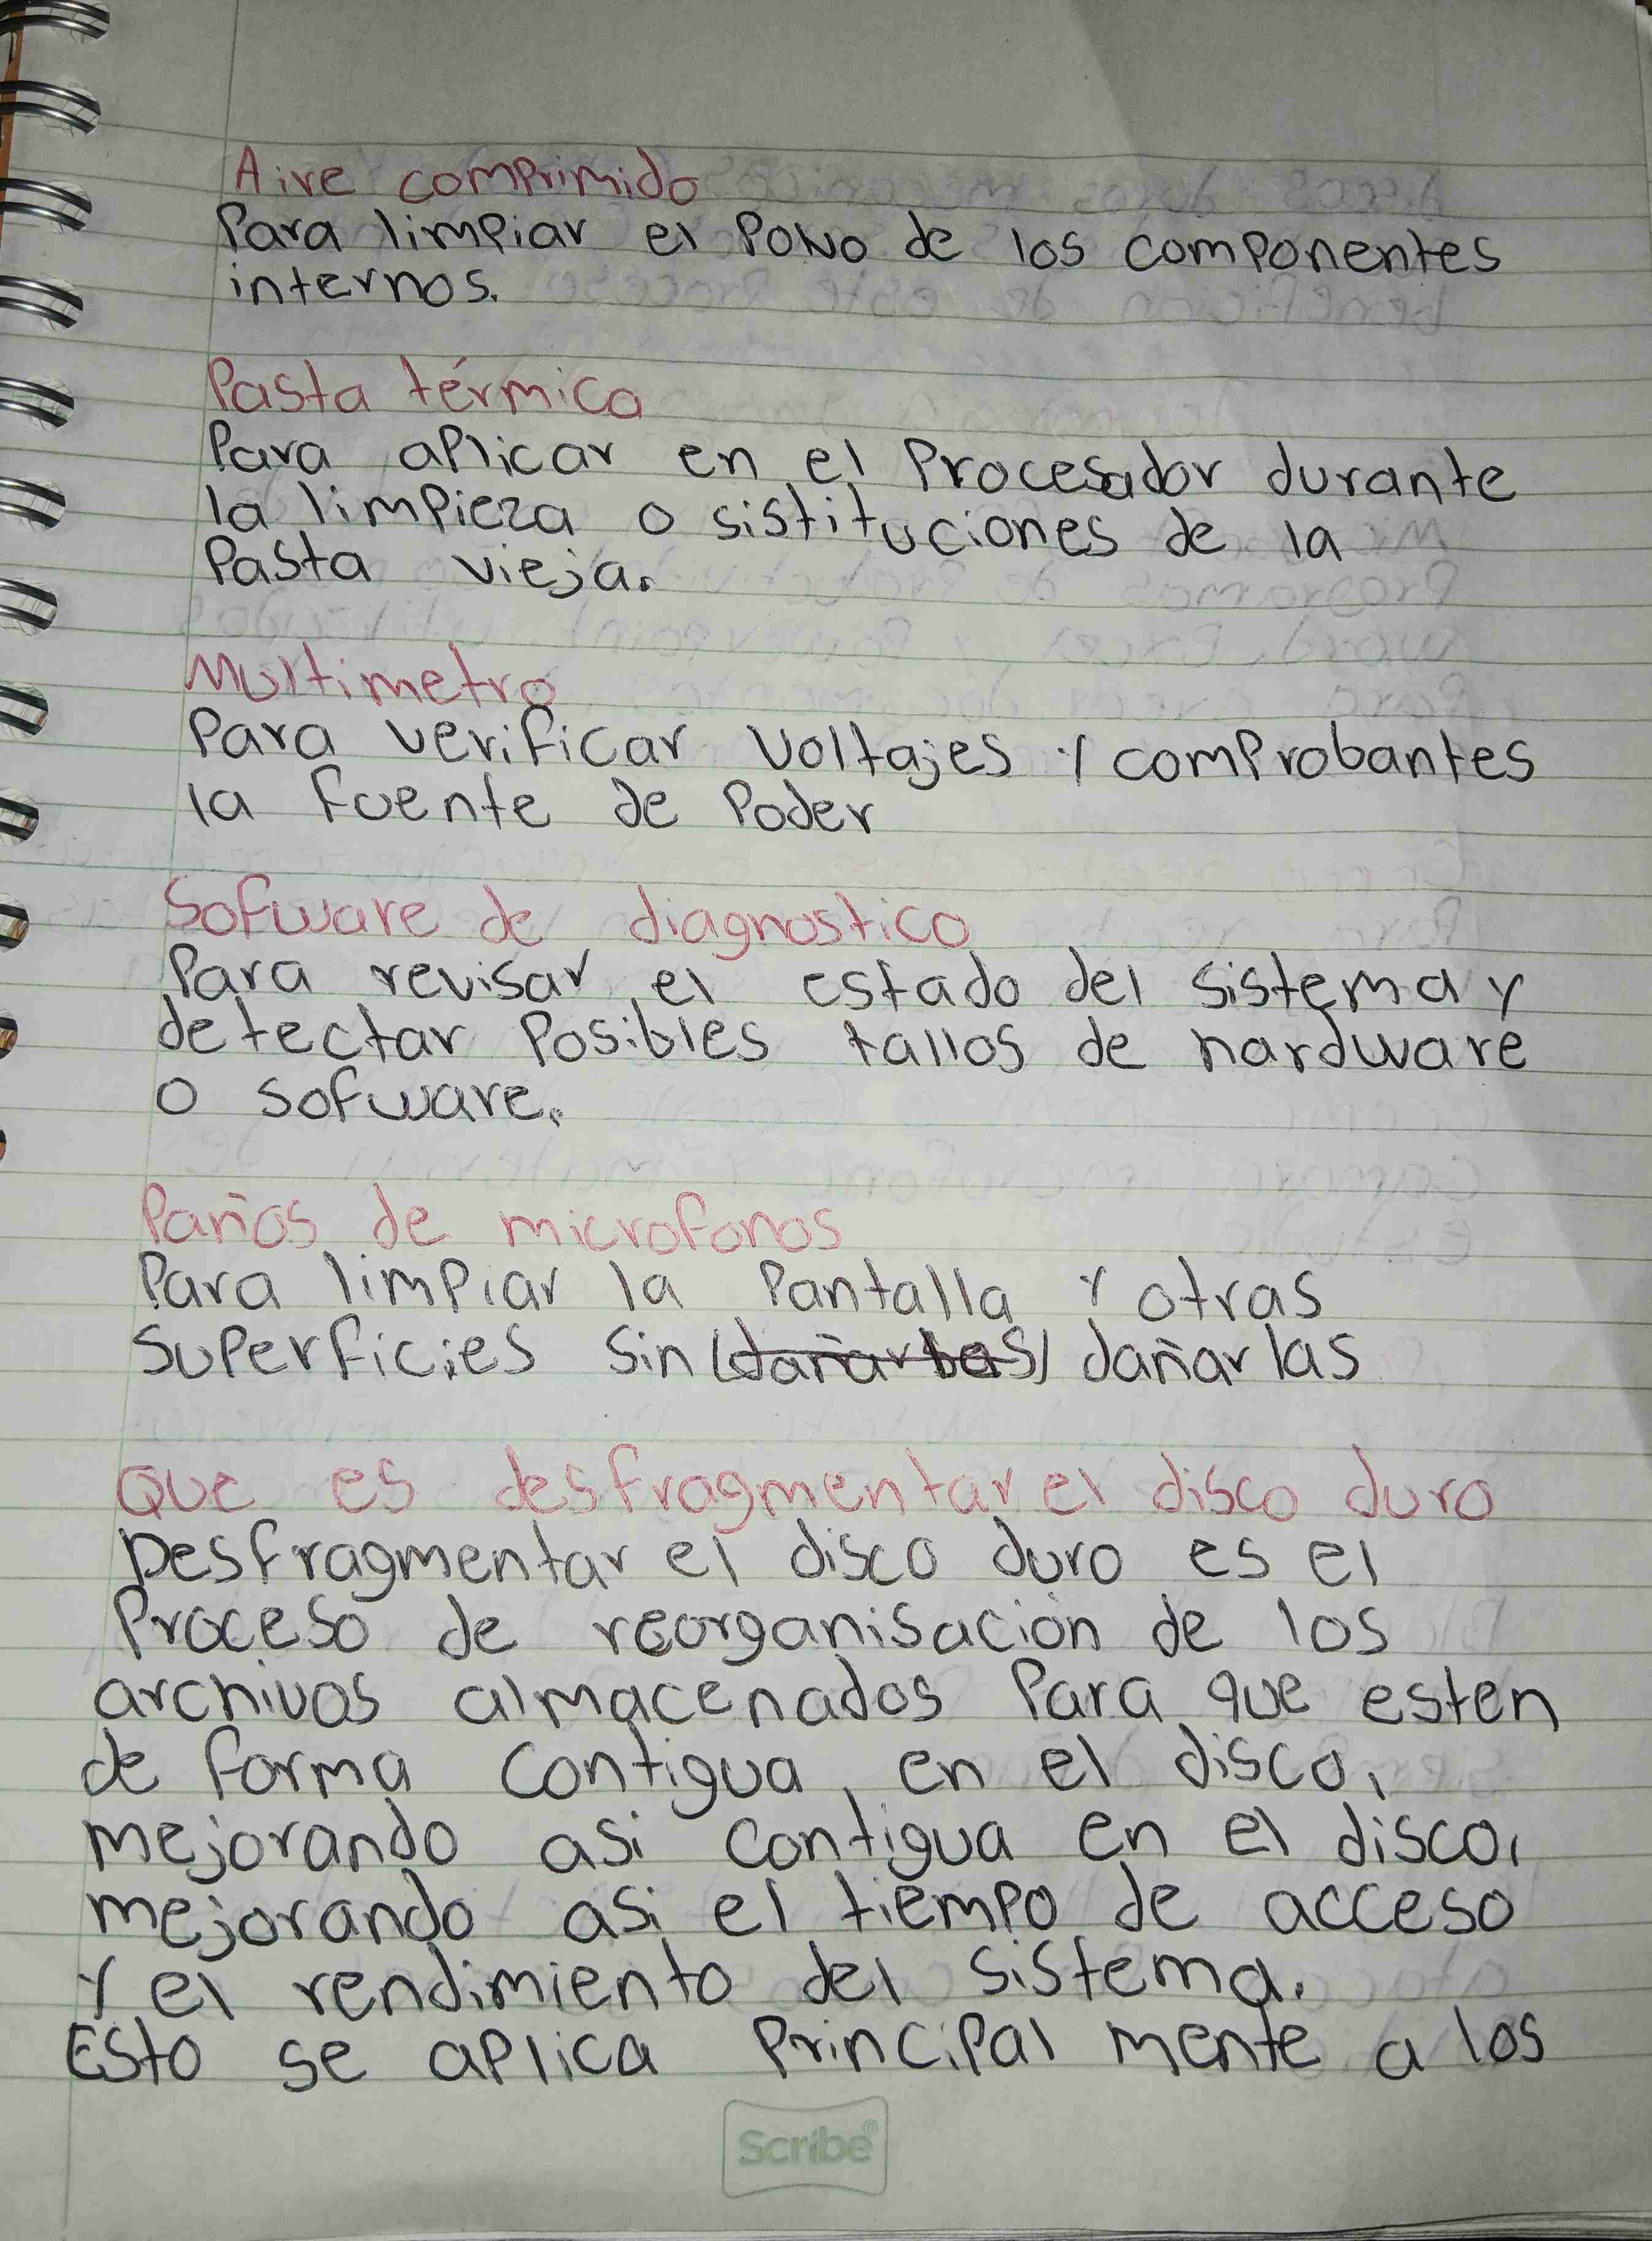 Aire comprimido
Para limpiar el Polvo de los componentes
internos.
Pasta térmica
Para aplicar en el Procesador durante
la limpieza o sistituciones de la
Pasta vieja.
Multimetro
Para verificar voltajes y comprobantes
la fuente de Poder
Sofware de diagnostico
Para revisar el estado del sistema y
detectar Posibles fallos de hardware
o sofware.
Paños de microfonos
Para limpiar la Pantalla y otras
superficies sin (dañarlas) dañar las
Que es desfragmentar el disco duro
Desfragmentar el disco duro es el
Proceso de reorganisación de los
archivos almacenados Para que esten
de forma contigua, en el disco,
mejorando asi contigua en el disco,
mejorando asi el tiempo de acceso
y el rendimiento del sistema.
Esto se aplica Principal mente a los
Scribe®